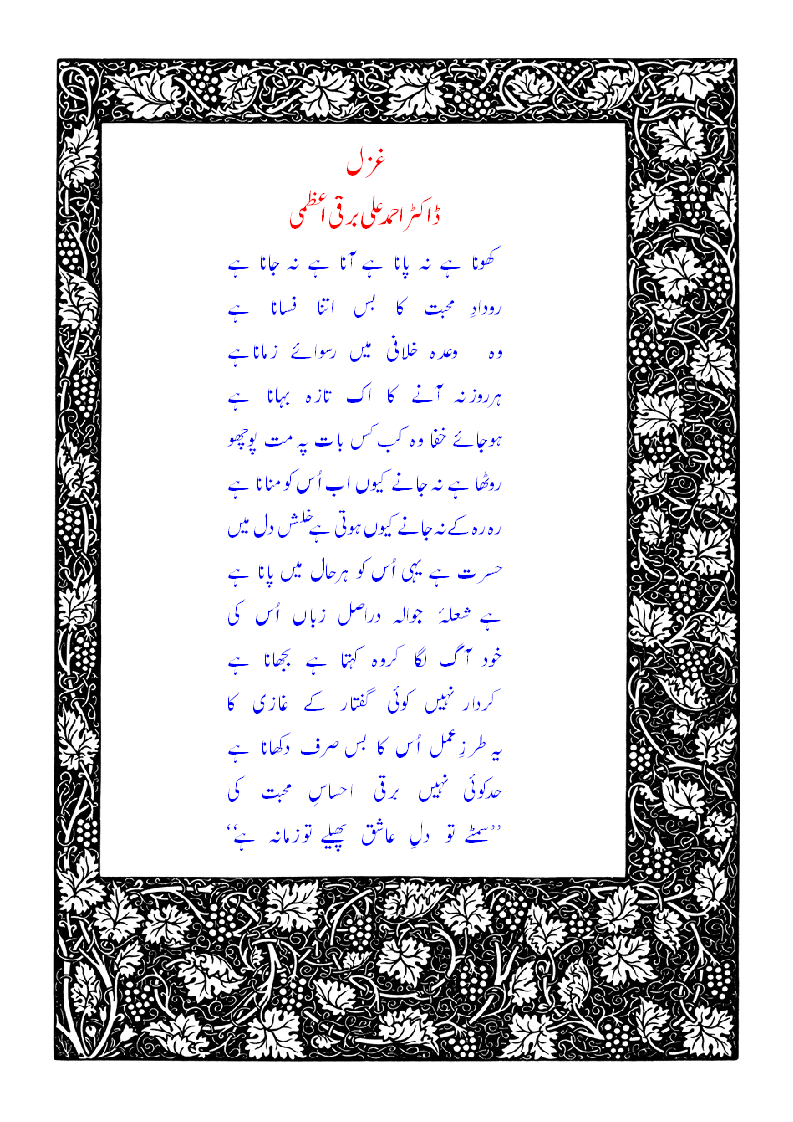 غزل
ڈاکٹر احمد علی برقی اعظمی
کھونا ہے نہ پانا ہے آنا ہے نہ جانا ہے
رودادِ محبت کا بس اتنا فسانا ہے
وہ وعدہ خلافی میں رسوائے زمانا ہے
ہرروز نہ آنے کا اک تازہ بہانا ہے
ہوجائے خفا وہ کب کس بات پہ مت پوچھو
روٹھا ہے نہ جانے کیوں اب اُس کو منانا ہے
رہ رہ کے نہ جانے کیوں ہوتی ہے خلش دل میں
حسرت ہے یہی اُس کو ہرحال میں پانا ہے
ہے شعلۂ جوالہ دراصل زباں اُس کی
خود آگ لگا کروہ کہتا ہے بجھانا ہے
کردار نہیں کوئی گفتار کے غازی کا
یہ طرزِ عمل اُس کا بس صرف دکھانا ہے
حدکوئی نہیں برقی احساسِ محبت کی
’’سمٹے تو دلِ عاشق پھیلے تو زمانہ ہے‘‘